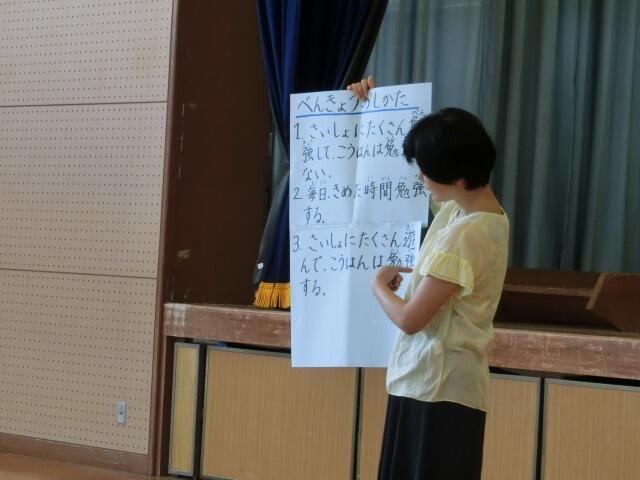 べんきょうのしかた
1. さいしょにたくさん勉
強して、こうはんは勉
ない。
2. 毎日、きめた時間勉強
する。
3. さいしょにたくさん遊
んで、こうはんは勉強
する。